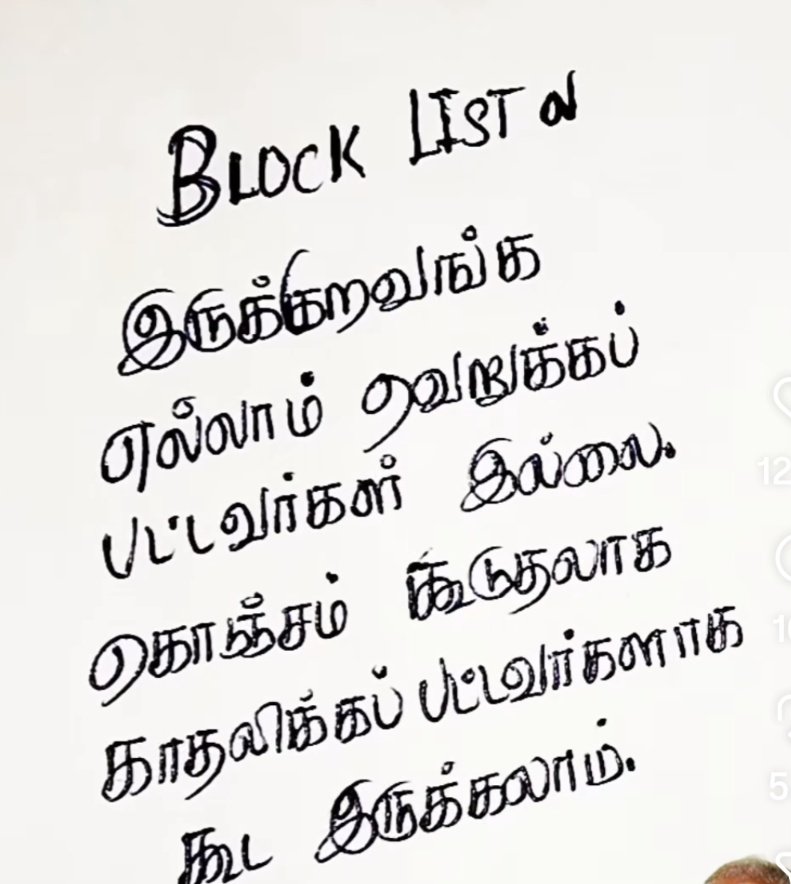 BLOCK LIST ல
இருக்கிறவங்க
எல்லாம் வெறுக்கப்
பட்டவர்கள் இல்லை.
கொஞ்சம் கூடுதலாக
காதலிக்கப் பட்டவர்களாக
கூட இருக்கலாம்.